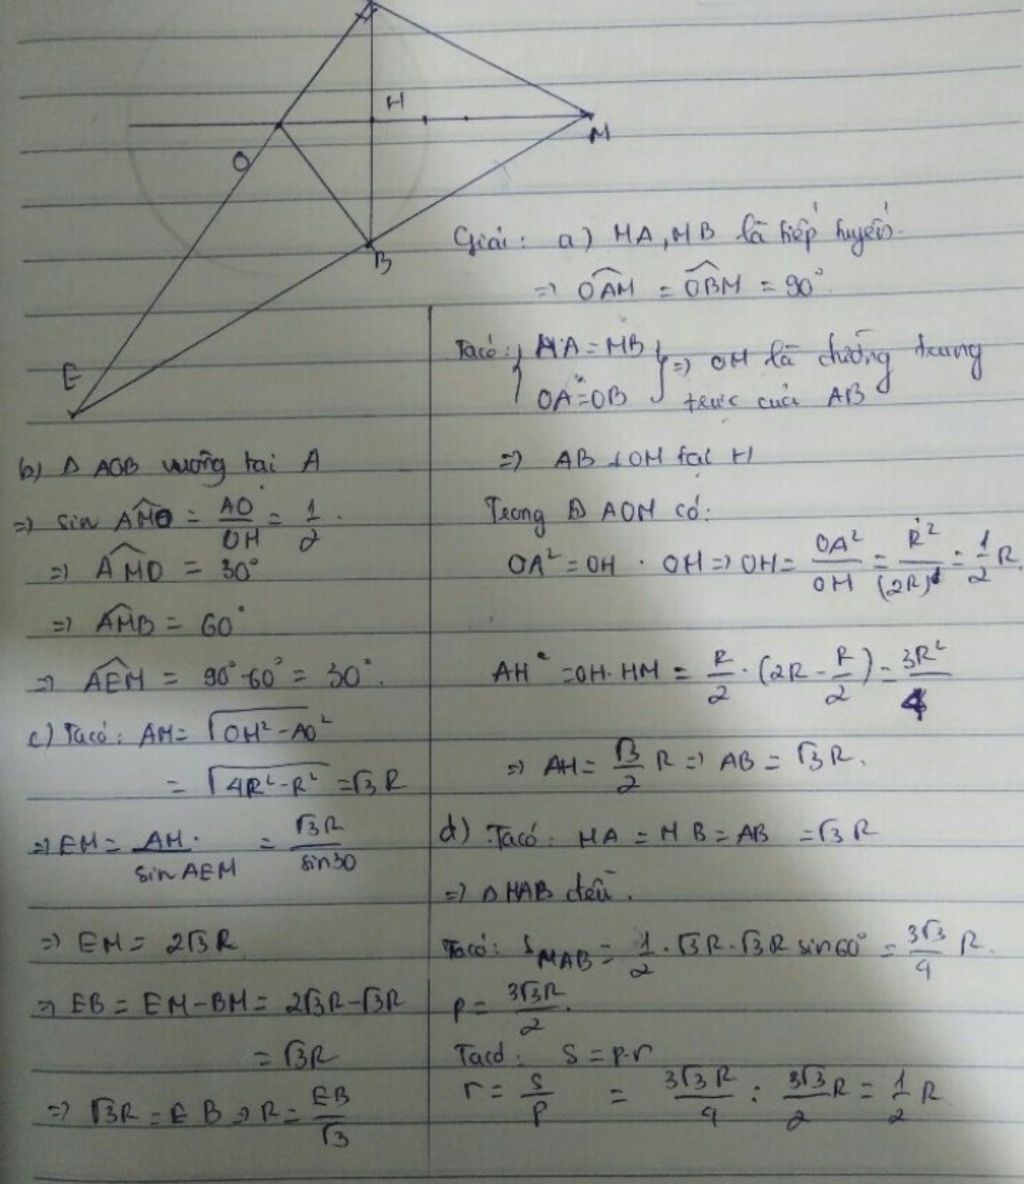 H
M
O
B
E
Giải: a) MA, MB là tiếp tuyến.
=> OAM = OBM = 90°
Ta có: { MA = MB
OA = OB } => OM là đường trung trực của AB
=> AB ⊥ OM tại H
Trong Δ AOM có:
OA² = OH · OM => OH = OA²/OM = R²/(2R) = 1/2 R.
AH² = OH·HM = R/2 · (2R - R/2) = 3R²/4
=> AH = √3/2 R => AB = √3R.
b) Δ AOB vuông tại A
=> sin AMO = AO/OM = 1/2.
=> AMO = 30°
=> AMB = 60°
=> AEM = 90° - 60° = 30°.
c) Ta có: AM = √(OM² - AO²)
= √(4R² - R²) = √3R
=> EM = AM/sin AEM = √3R/sin30
=> EM = 2√3R
=> EB = EM - BM = 2√3R - √3R
= √3R
=> √3R = EB => R = EB/√3
d) Ta có: MA = MB = AB = √3R
=> Δ MAB đều.
Ta có: S MAB = 1/2 · √3R · √3R sin60° = 3√3/4 R.
p = 3√3R/2.
Ta có: S = p.r
r = S/p = 3√3R/4 : 3√3/2 R = 1/2 R